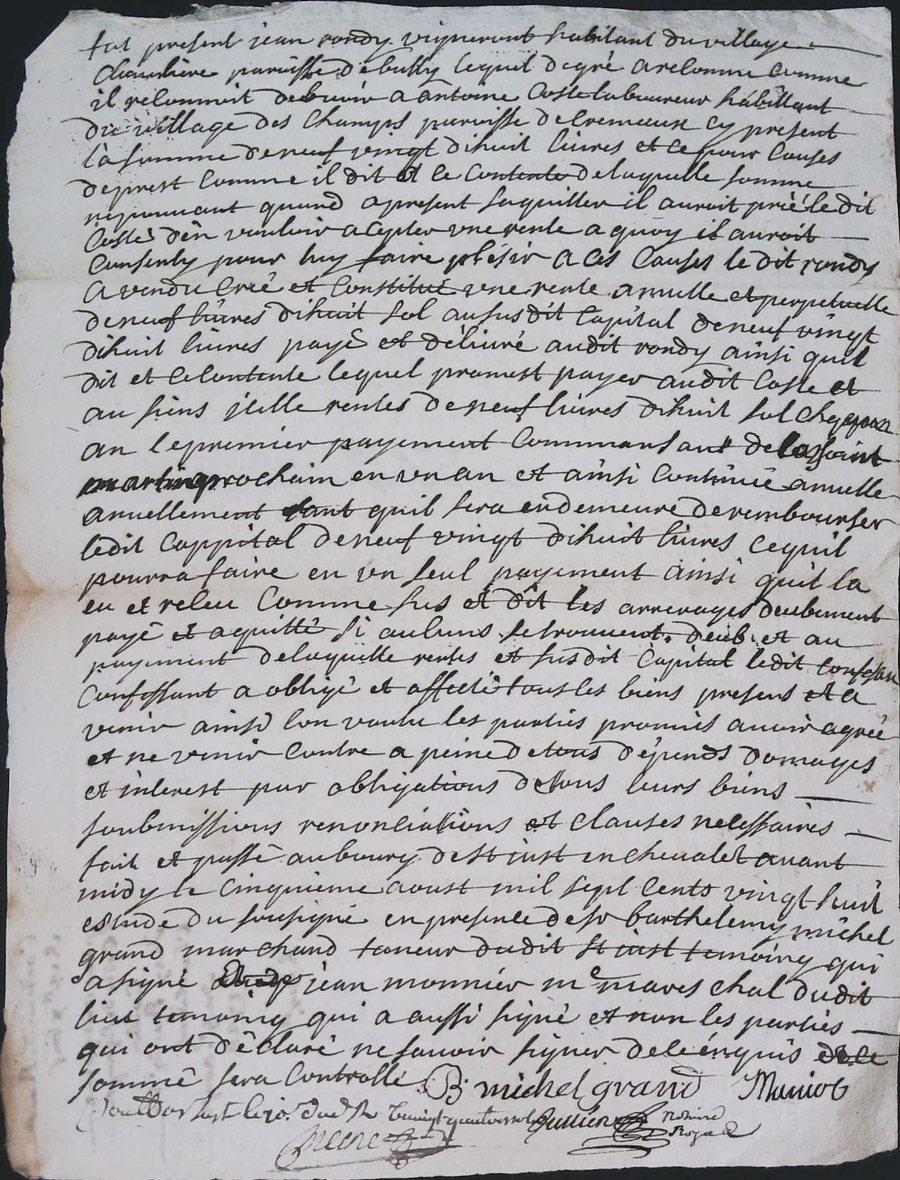 fut present jean rondy vigneront habitant du village
Chambiere paroisse de bully lequel de gré a reconnu comme
il reconnoit debvoir a antoine Coste laboureur habittant
du village des Champs paroisse de Cremeaux cy present
la somme de neuf vingt dihuit livres et ce pour causes
de prest comme il dit et ce contente de laquelle somme
ne pouvant quand a present saquitter il auroit prié le dit
Coste d'en vouloir acepter une rente a quoy il auroit
consenty pour luy faire plésir a ces causes le dit rondy
a vendu creé et constitut une rente anuelle et perpetuelle
de neuf livres dihuit sol au susdit capital de neuf vingt
dihuit livres payé et délivré audit rondy ainsi quil
dit et ce contente lequel promest payer audit Coste et
au siens jcelle rentes de neuf livres dihuit sol chaquun
an le premier payement commansant de la saint
martin prochain en un an et ainsi continué anuelle
anuellement tant quil sera en demeure de rembourser
ledit cappital de neuf vingt dihuit livres ce quil
pourra faire en un seul payement ainsi quil la
eu et receu comme sus et dit les arrerages deubement
payé et aquitté si aucuns se trouvent deub et au
payement de laquelle rentes et susdit capital ledit confessan
confessant a obligé et affecté tous les biens presens et a
venir ainsi lon voulu les parties promis avoir agreé
et ne venir contre a peine de tous dépends domages
et interest par obligations de tous leurs biens
soubmissions renonciations et clauses necessaires
fait et passé au bourg de st just en chevalet avant
midy le cinquieme aoust mil sept cents vingt huit
estude du sousigné en presence de sr barthelemy michel
grand marchand taneur dudit st just temoing qui
a signé jean monnier me mareschal dudit
lieu temoing qui a aussi signé et non les parties
qui ont déclaré ne savoir signer de ce enquis de ce
sommé sera controllé B michel grand Munier
st just le
notaire
Royal